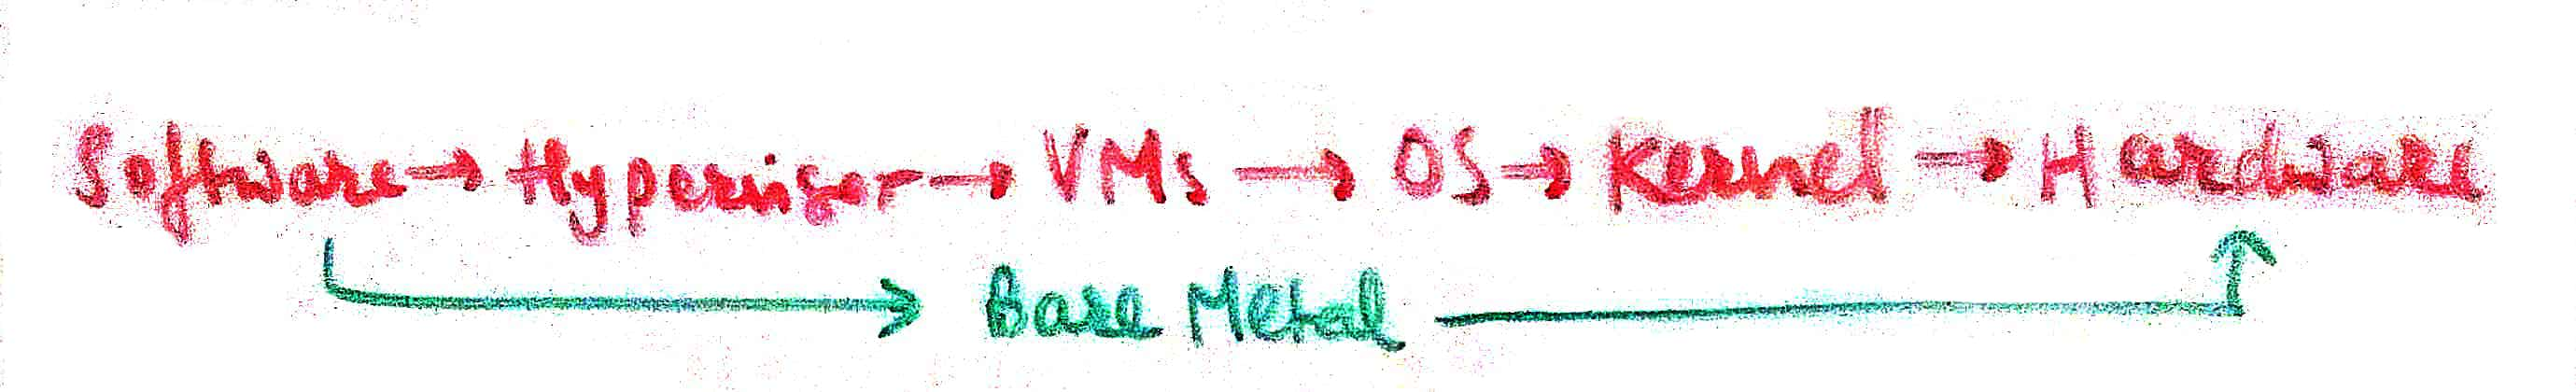 Software → Hypervisor → VMs → OS → Kernel → Hardware
Bare Metal